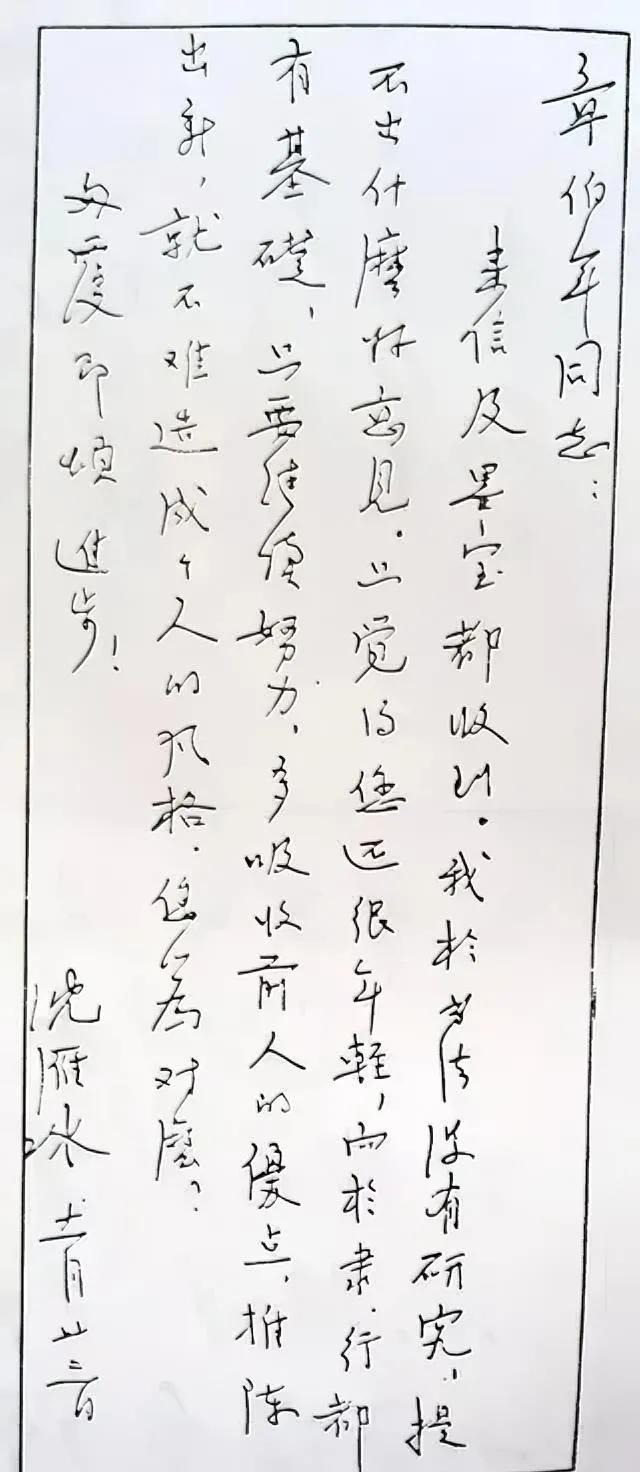 章伯年同志：
来信及墨宝都收到。我於书法没有研究，提
不出什麽好意见。只觉得您还很年轻，而於隶、行都
有基础，只要继续努力，多吸收前人的优点，推陈
出新，就不难造成个人的风格。您以为对麽？
匆覆即颂 进步！
沈雁冰 十一月廿三日